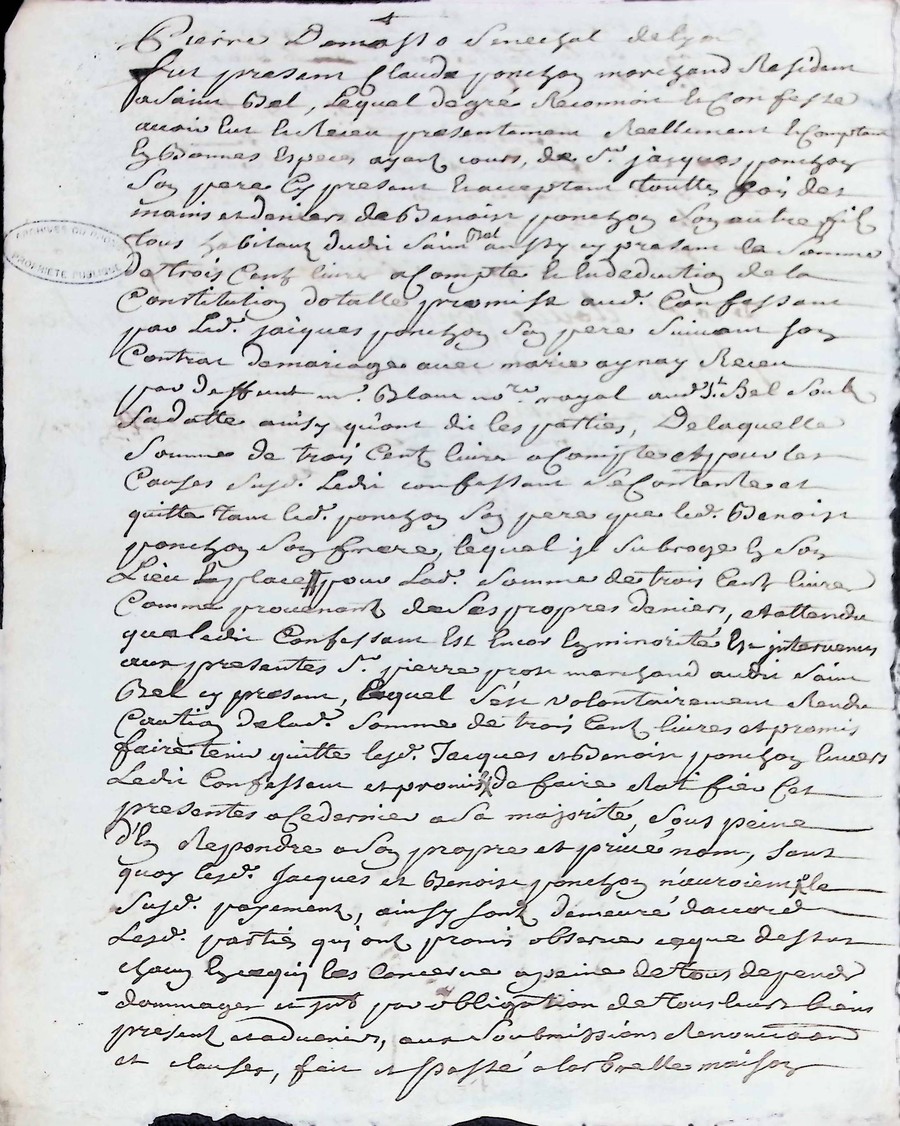 Pierre Demasso Senechal delyo
fut present Claude ponchon marchand Resident
a Saint Bel, Lequel de gré Reconnoit et Confesse
avoir Eut et Receu presentement Reellement et Comptant
En Bonnes Especes ayant cours, de Sr. jacques ponchon
Son pere Cy present et acceptant touttes fois des
mains et deniers de Benoist ponchon Son autre fils
tous habitans dudit Saint Bel aussy cy present la Somme
de trois Cent livres a Compte et En deduction de la
Constitution dotalle promise aud. Confessant
par Led. jacques ponchon Son pere Suivant Son
Contrat de mariage avec marie aynay Receu
par deffunt me. Blanc nore. royal aud. St. Bel Soub
Sa datte ainsy qu'ont dit les parties, De laquelle
Somme de trois Cent livres a Compte et pour les
Causes Susd. Ledit confessant Se Contente et
quitte tant led. ponchon Son pere que led. Benoist
ponchon Son frere, lequel jl Subroge En Son
Lieu Et place pour Lad. Somme de trois Cent livres
Comme provenant de Ses propres deniers, et attendu
que ledit Confessant Est Encor En minorité Est jntervenus
aux presentes Sr. pierre marchand audit Saint
Bel cy present, Lequel S'est volontairement Rendu
Caution de lad. Somme de trois Cent livres et promis
faire tenir quitte lesd. Jacques et Benoist ponchon Envers
Ledit Confessant et promis de faire Ratifier Ces
presentes a ce dernier a Sa majorité, Sous peine
d'En Repondre a Son propre et privé nom, Sans
quoy lesd. Jacques et Benoist ponchon n'auroient fait le
Susd. payement, ainsy Sont demeuré d'accord
Lesd. parties qui ont promis observer ce que dessus
chacun En ce qui les Concerne a peine de tous depends
dommages et jnts par obligation de tous leurs biens
present et advenirs, aux Soubmissions Renonciaons
et clauses, fait et passé a larbrelle maison
ARCHIVES DU RHÔNE
PROPRIÉTÉ PUBLIQUE